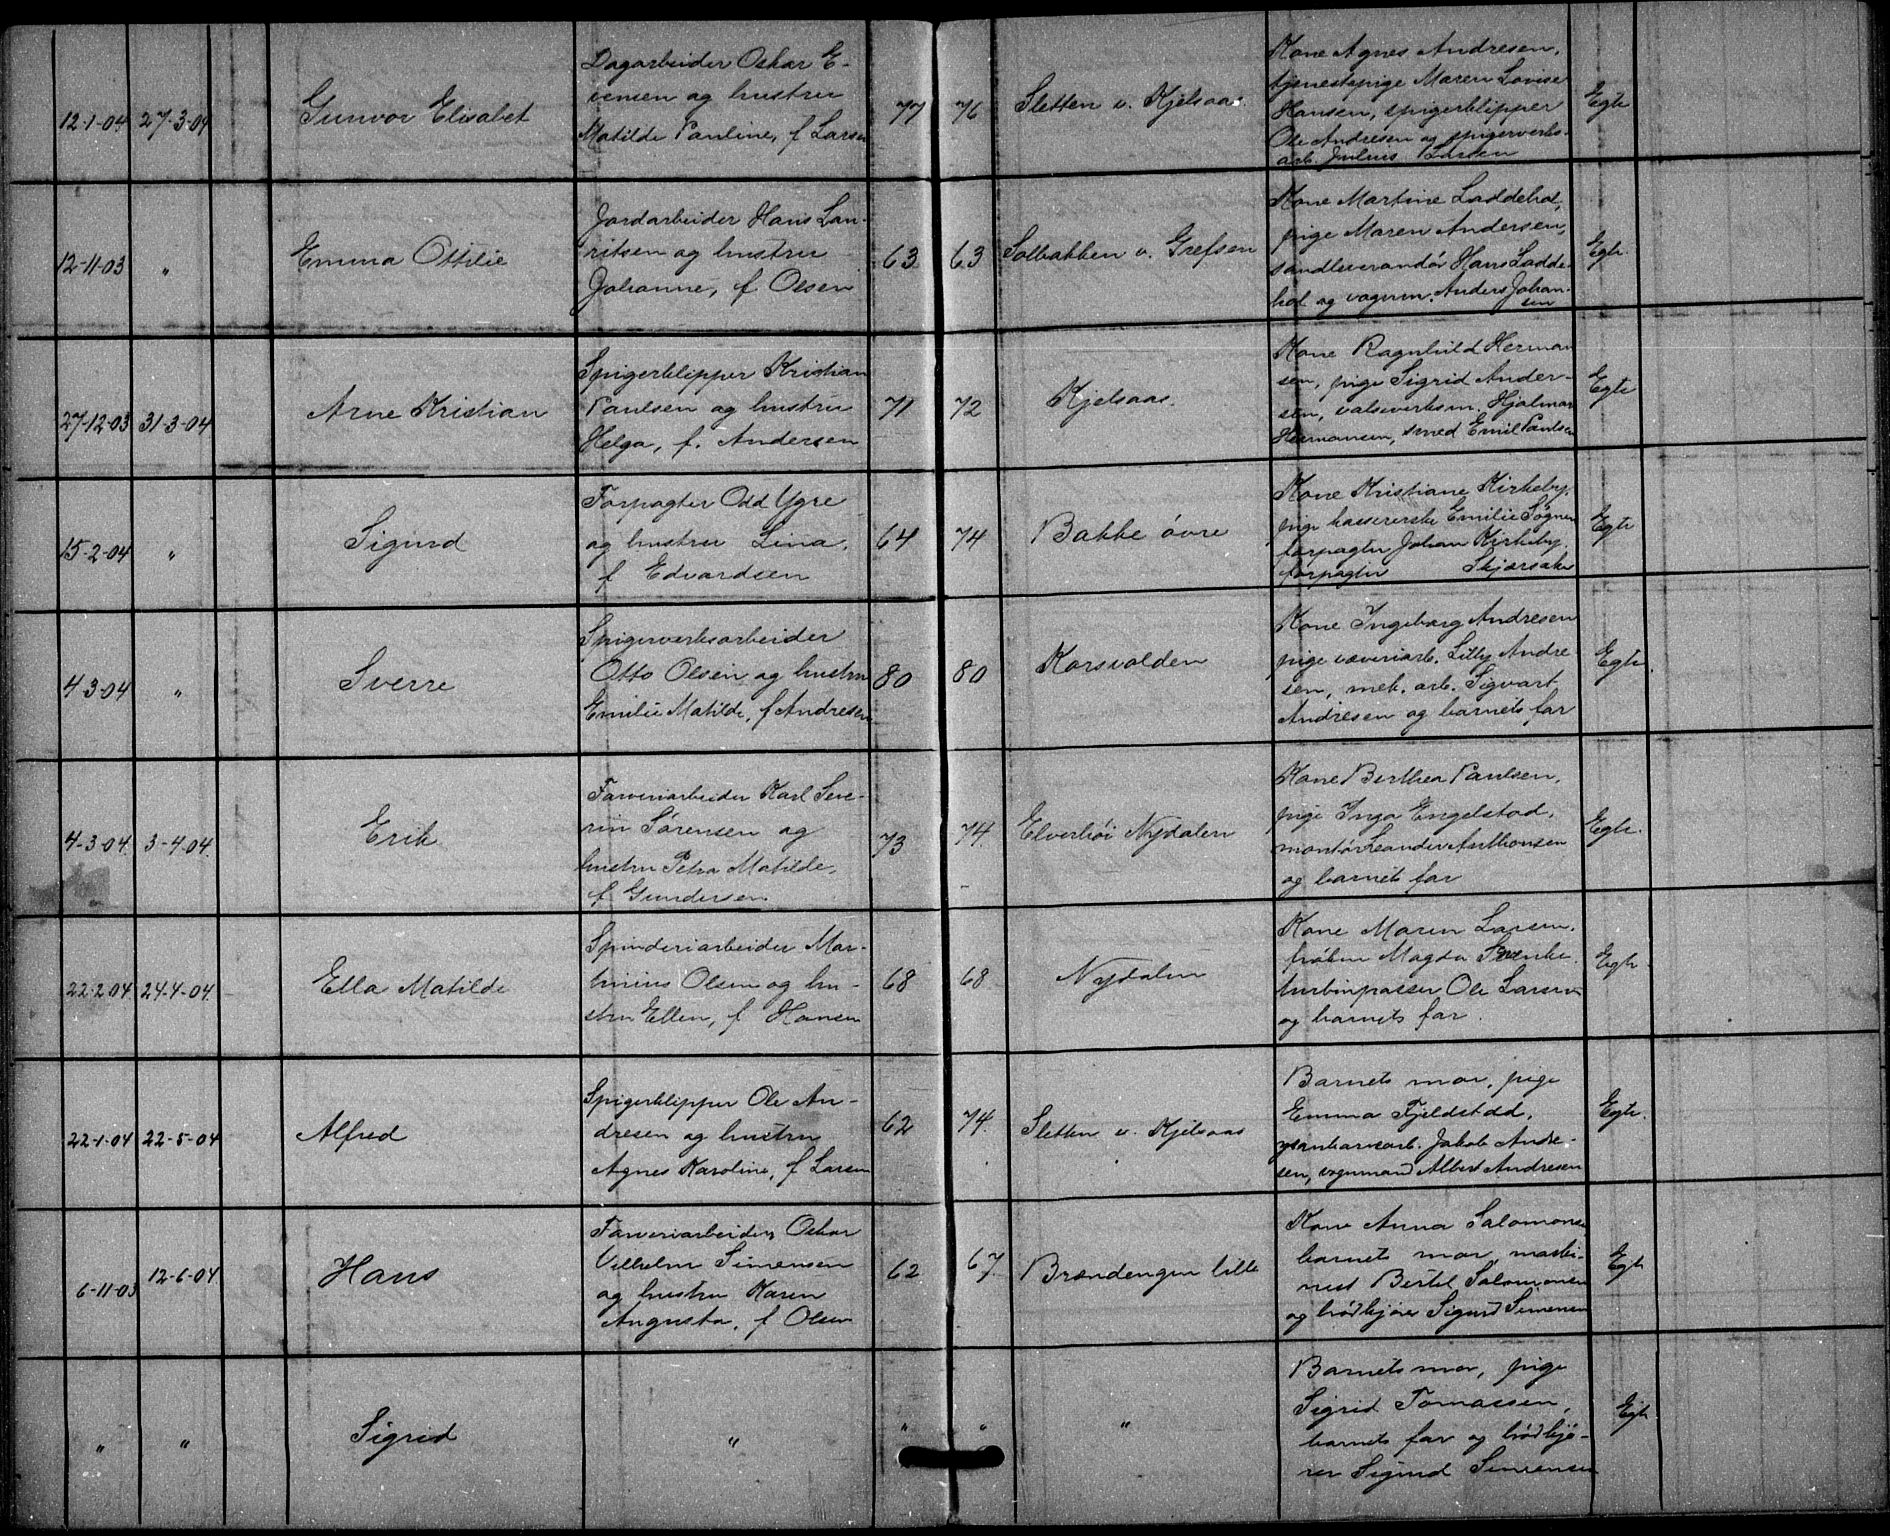 12-1-04 27-3-04 Gunvor Elisabet
Dagarbeider Oskar E-
vensen og hustru
Matilde Pauline, f Larsen
77 76 Sletten v. Kjelsaas.
Kone Agnes Andresen,
tjenestepige Maren Lovise
Hansen, spigerklipper
Ole Andresen og spigerverks-
arb. Julius Larsen
Egte
12-11-03 " Emma Ottilie
Jordarbeider Hans Lau-
ritsen og hustru
Johanne, f Olsen
63 63 Solbakken v. Grefsen
Kone Martine Laddehol,
pige Maren Andersen,
sandleverandör Hans Ladde-
hol og vognm. Anders Johan-
sen
Egte.
27-12-03 31-3-04 Arne Kristian
Spigerklipper Kristian
Paulsen og hustru
Helga, f. Andersen
71 72 Kjelsaas.
Kone Ragnhild Herman
sen, pige Sigrid Ander-
sen, valseverksm. Hjalmar
Hermansen, smed Emil Paulsen
Egte
15-2-04 " Sigurd
Forpagter Odd Ygre
og hustru Lina,
f Edvardsen
64 74 Bakke övre
Kone Kristiane Kirkeby,
pige kassererske Emilie Søgnen
forpagter Johan Kirkeby,
forpagter Skjørsaker
Egte
4-3-04 " Sverre
Spigerverksarbeider
Otto Olsen og hustru
Emilie Matilde, f Andresen
80 80 Korsvolden
Kone Ingeborg Andresen
pige væveriarb. Lilly Andre
sen, mek. arb. Sigvart
Andresen og barnets far
Egte.
4-3-04. 3-4-04. Erik
Farveriarbeider Karl Seve-
rin Sørensen og
hustru Petra Matilde,
f Gundersen
73 74. Elverhöi Nydalen
Kone Berthea Paulsen,
pige Inga Engelstad,
montör Leander Anthonsen
og barnets far
Egte.
22-2-04 24-4-04. Ella Matilde
Spinderiarbeider Mar-
tinius Olsen og hu-
stru Ellen, f Hansen
68 68 Nydalen
Kone Maren Larsen,
fröken Magda Svenke
turbinpasser Ole Larsen
og barnets far.
Egte.
22-1-04 22-5-04 Alfred
Spigerklipper Ole An-
dresen og hustru
Agnes Karoline, f Larsen
62 74. Sletten v. Kjelsaas
Barnets mor, pige
Emma Fjeldstad,
Jakob Andre-
sen, vognmand Albert Andresen
Egte.
6-11-03 12-6-04 Hans
Farveriarbeider Oskar
Vilhelm Simensen
og hustru Karen
Augusta, f Olsen
62 67. Brændengen lille
Kone Anna Salomonsen
barnets mor, maski-
nist Bertel Salomonsen
og brödkjörer Sigurd Simensen
Egte
" " Sigrid " " " "
Barnets mor, pige
Sigrid Tomassen,
barnets far og brödkjö-
rer Sigurd Simensen
Egte.